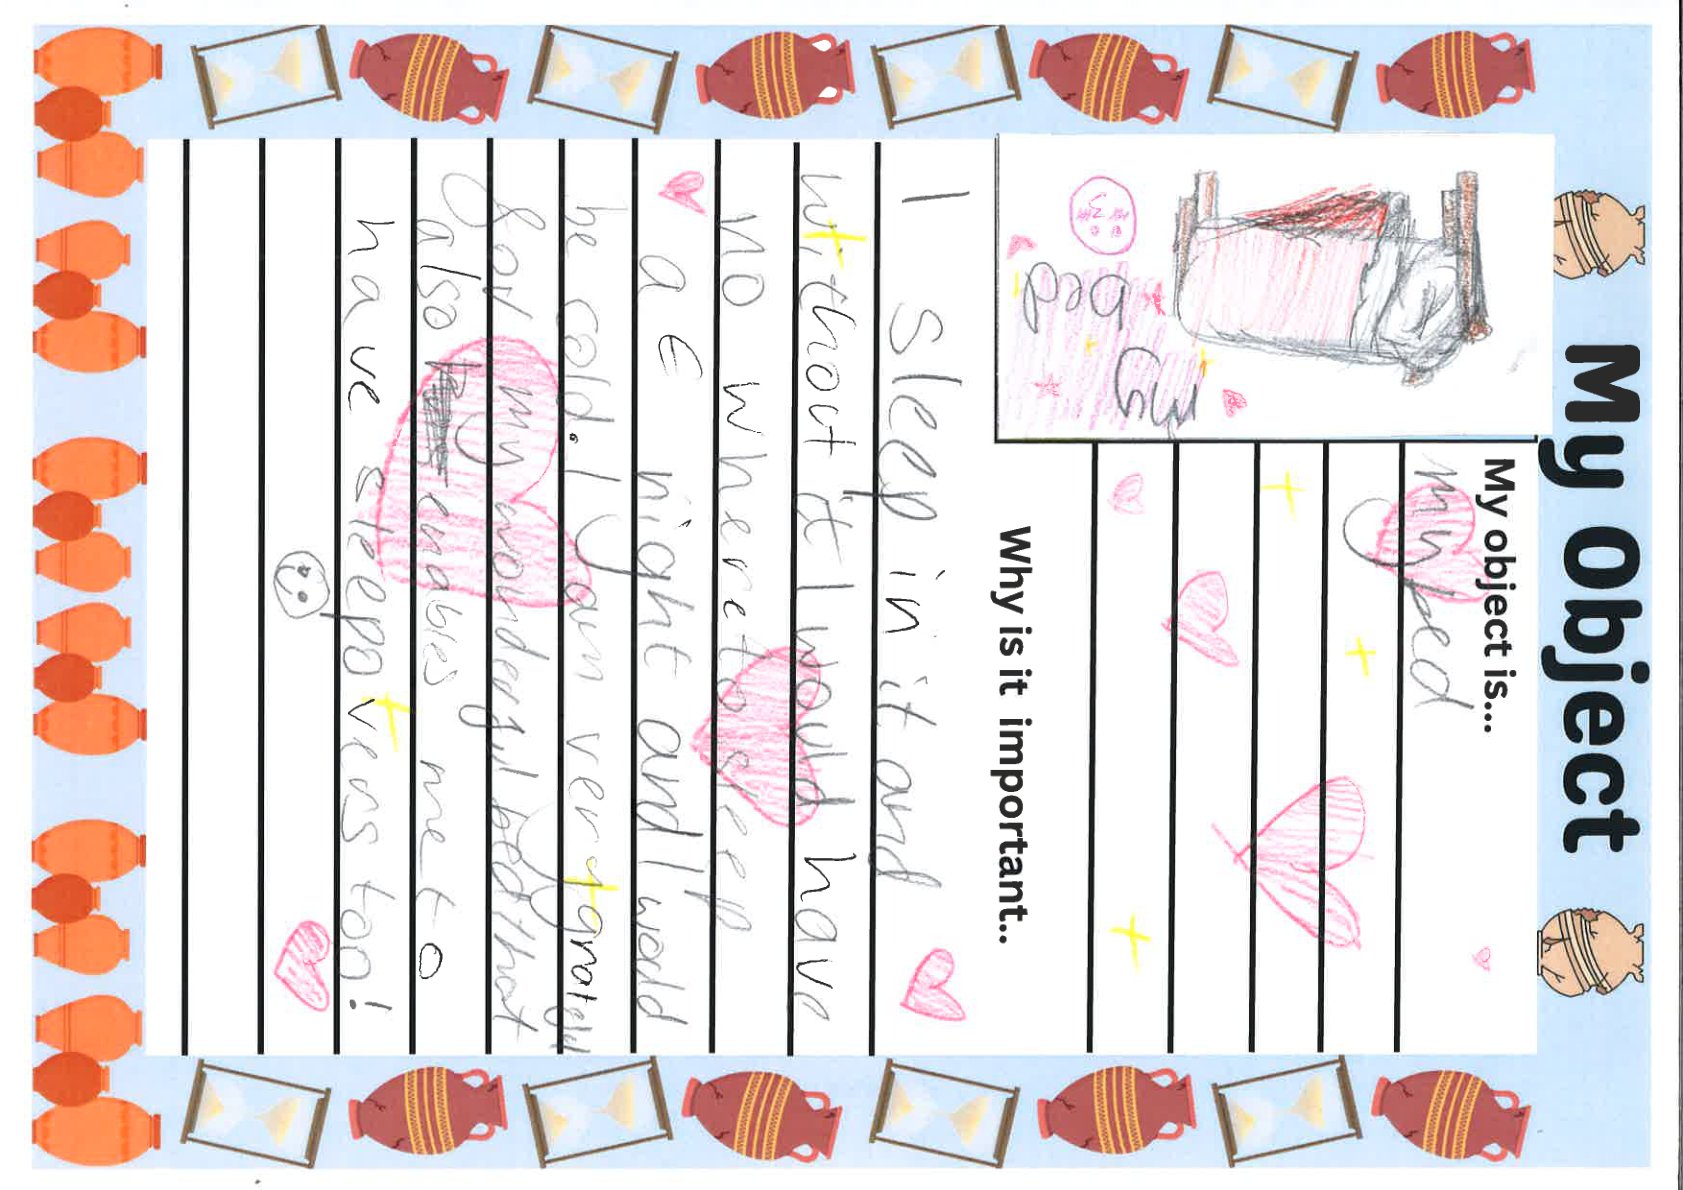 My Object
My object is...
my bed
My
bed
Why is it important..
I sleep in it and
without it I would have
no where to sleep
at night and I would
be cold. I am very grateful
for my wonderful bed that
also enables me to
have sleepovers too!